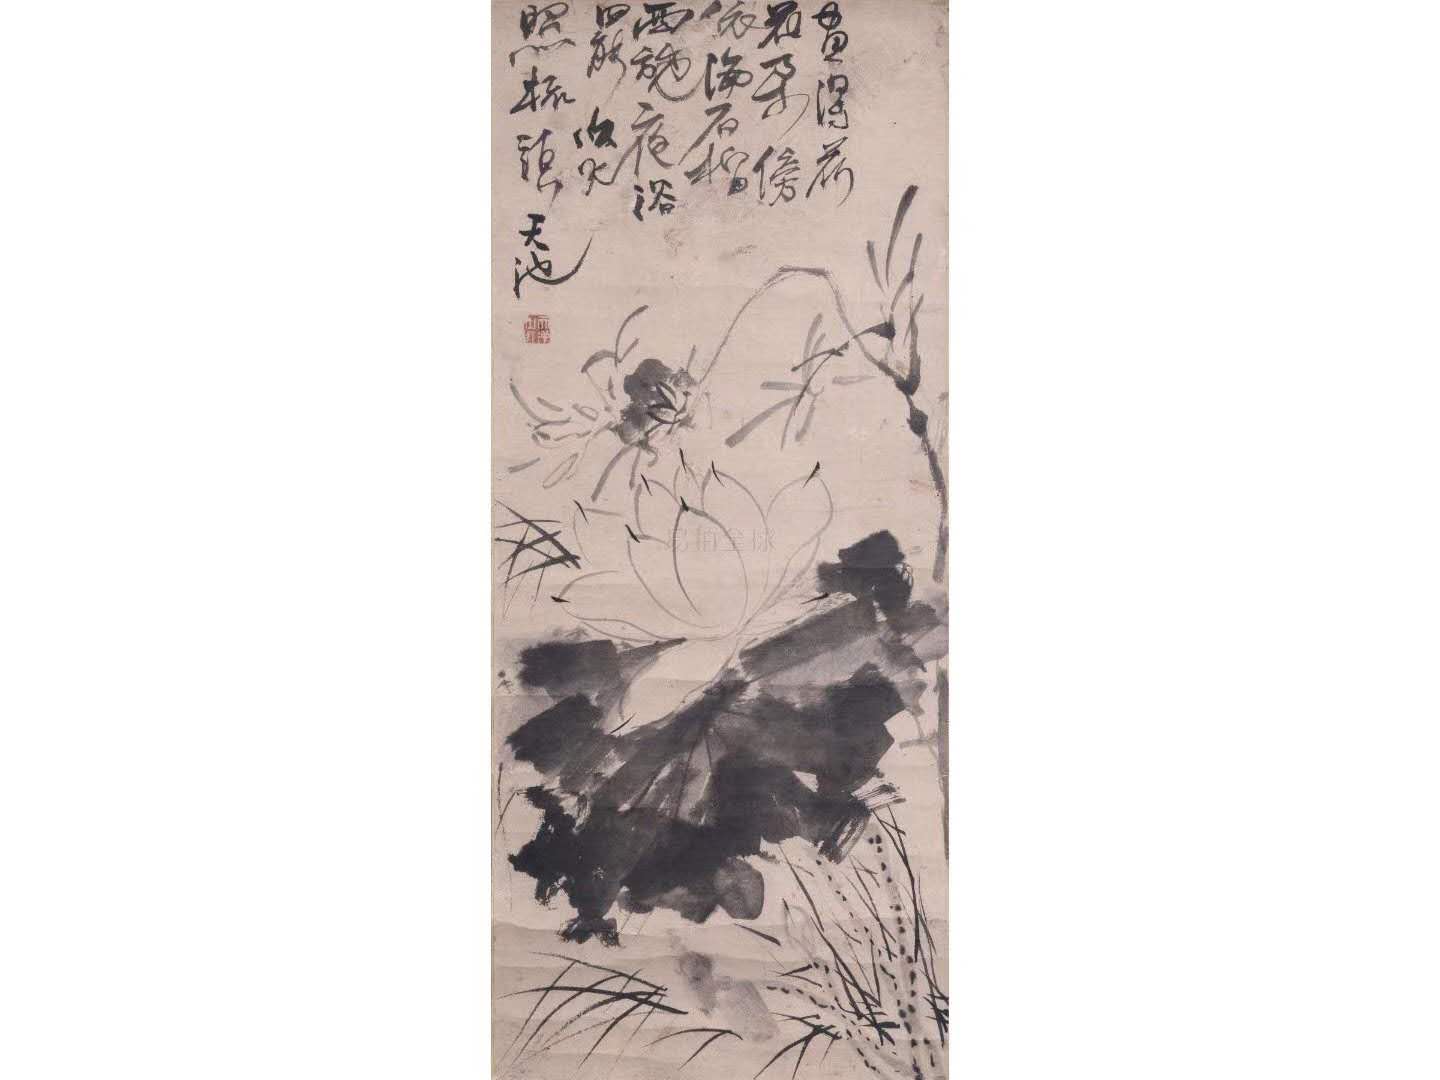 畫得荷
花朵傍
依海石榴
西施夜浴
罷火
照梳頭
天池
易拍全球